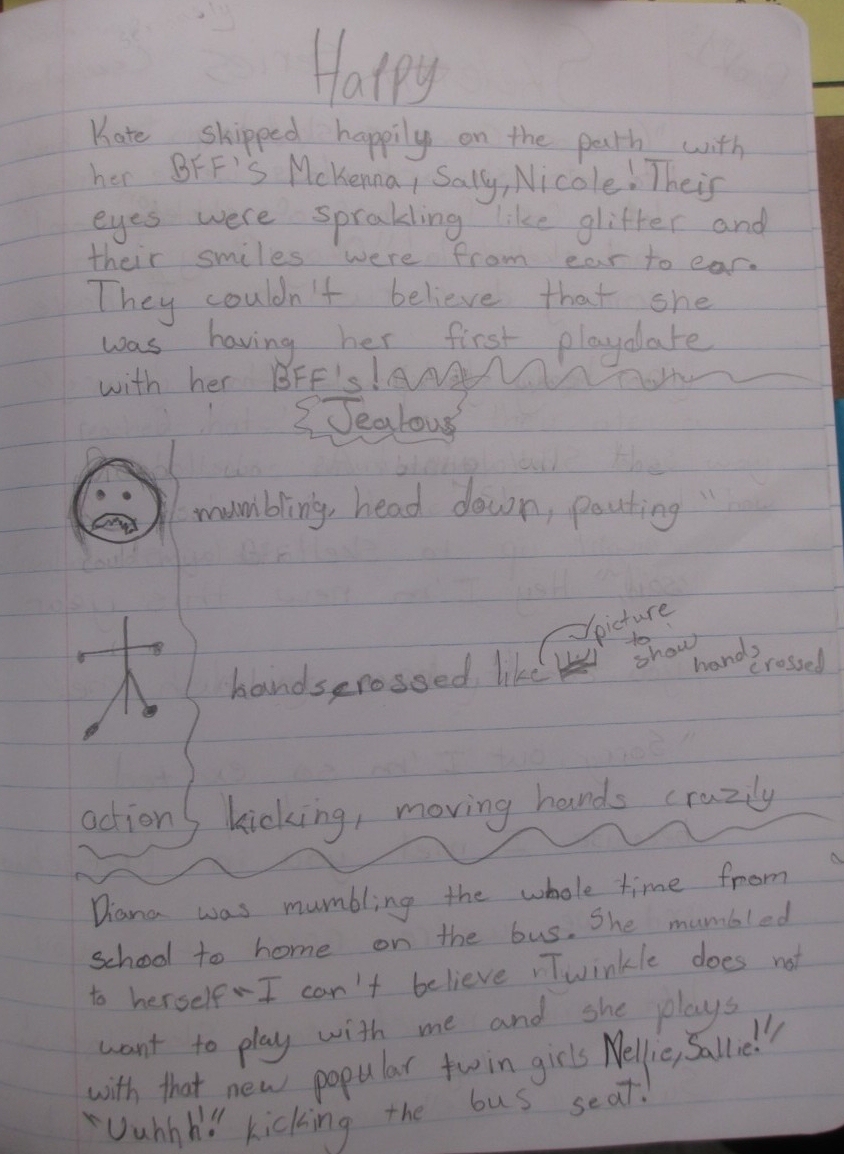 Happy
Kate skipped happily on the path with
her BFF's Mckenna, Sally, Nicole! Their
eyes were sprakling like glitter and
their smiles were from ear to ear.
They couldn't believe that she
was having her first playdate
with her BFF's!
Jealous
mumbling, head down, pouting "
picture
to
show
hands
crossed
hands crossed like
action kicking, moving hands crazily
Diana was mumbling the whole time from
school to home on the bus. She mumbled
to herself "I can't believe Twinkle does not
want to play with me and she plays
with that new popular twin girls Nellie, Sallie!"
"Uuhhh!" kicking the bus seat!